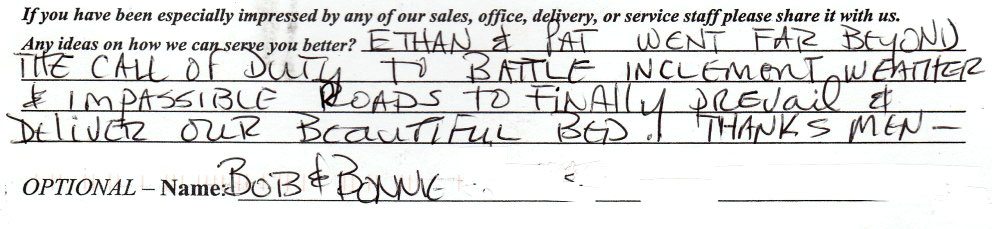 If you have been especially impressed by any of our sales, office, delivery, or service staff please share it with us.
Any ideas on how we can serve you better? ETHAN & PAT WENT FAR BEYOND
THE CALL OF DUTY TO BATTLE INCLEMENT WEATHER
& IMPASSIBLE ROADS TO FINALLY PREVAIL &
DELIVER OUR BEAUTIFUL BED! THANKS MEN —
OPTIONAL – Name: BOB & BONNIE